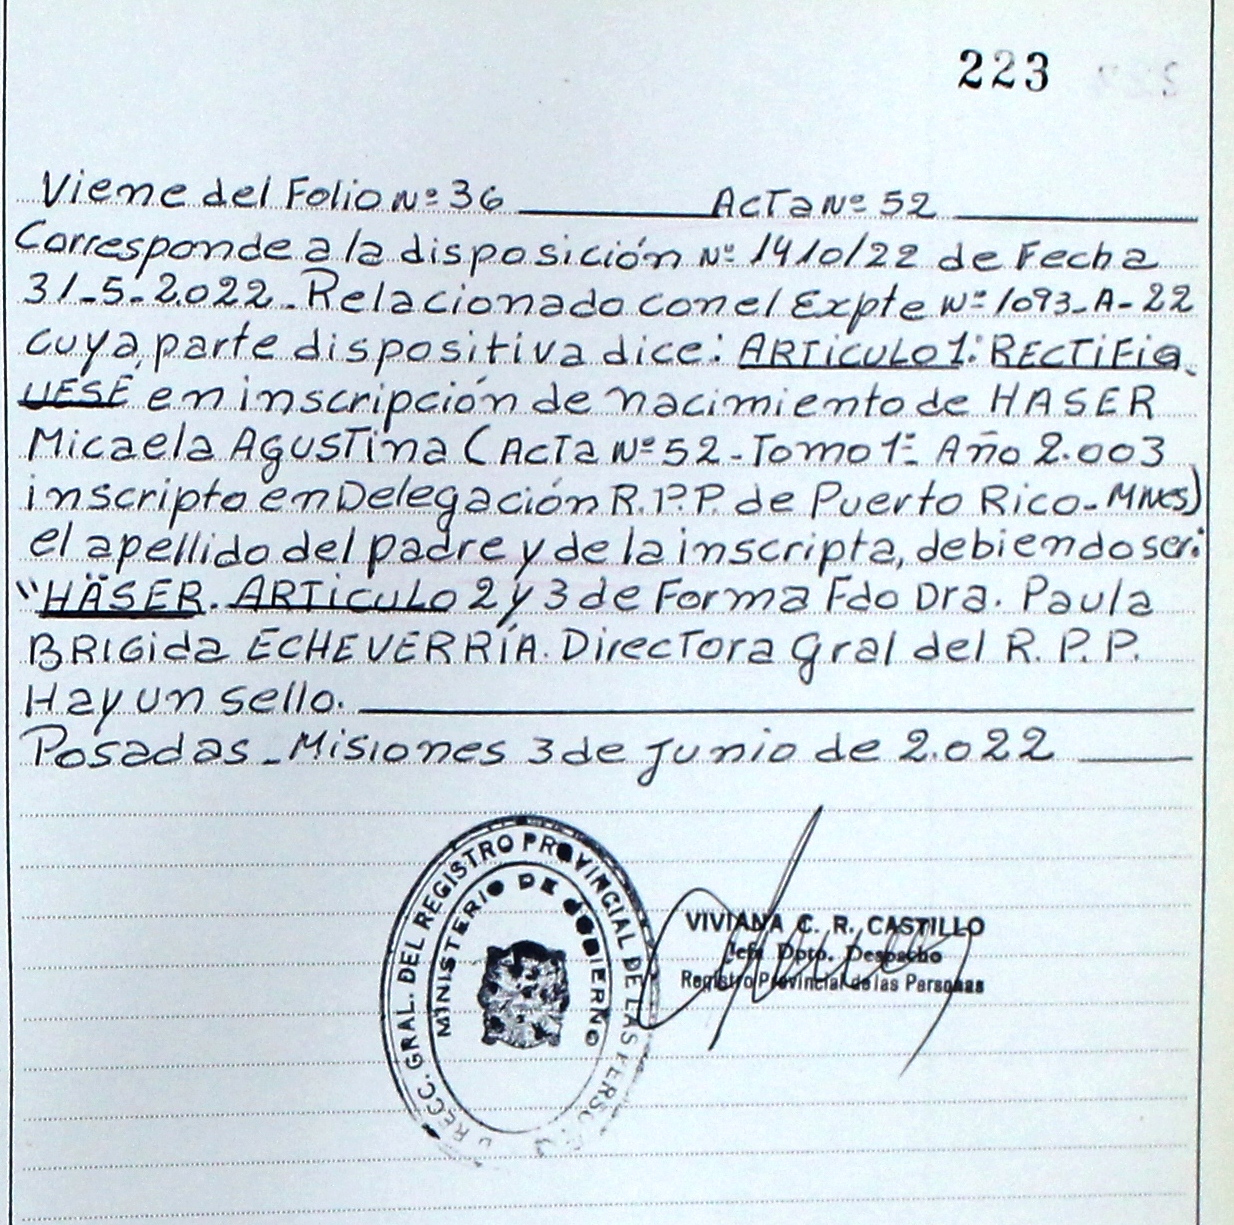 223
Viene del Folio Nº 36 ______ Acta Nº 52 ______
Corresponde a la disposición Nº 1410/22 de Fecha
31-5-2022_Relacionado con el Expte Nº 1093-A-22
cuya parte dispositiva dice: ARTICULO 1: RECTIFIQ
UESE en inscripción de nacimiento de HASER
Micaela Agustina (Acta Nº 52-Tomo 1º Año 2.003
inscripto en Delegación R.P.P. de Puerto Rico-Mnes)
el apellido del padre y de la inscripta, debiendo ser:
"HÄSER. ARTICULO 2 y 3 de Forma Fdo Dra. Paula
BRIGida ECHEVERRÍA. Directora Gral del R.P.P.
Hay un sello. ______
Posadas_Misiones 3 de Junio de 2.022 ______
RECC. GRAL. DEL REGISTRO PROVINCIAL DE LAS PERSO
MINISTERIO DE GOBIERNO
VIVIANA C. R. CASTILLO
Jefa Dpto. Despacho
Registro Provincial de las Personas